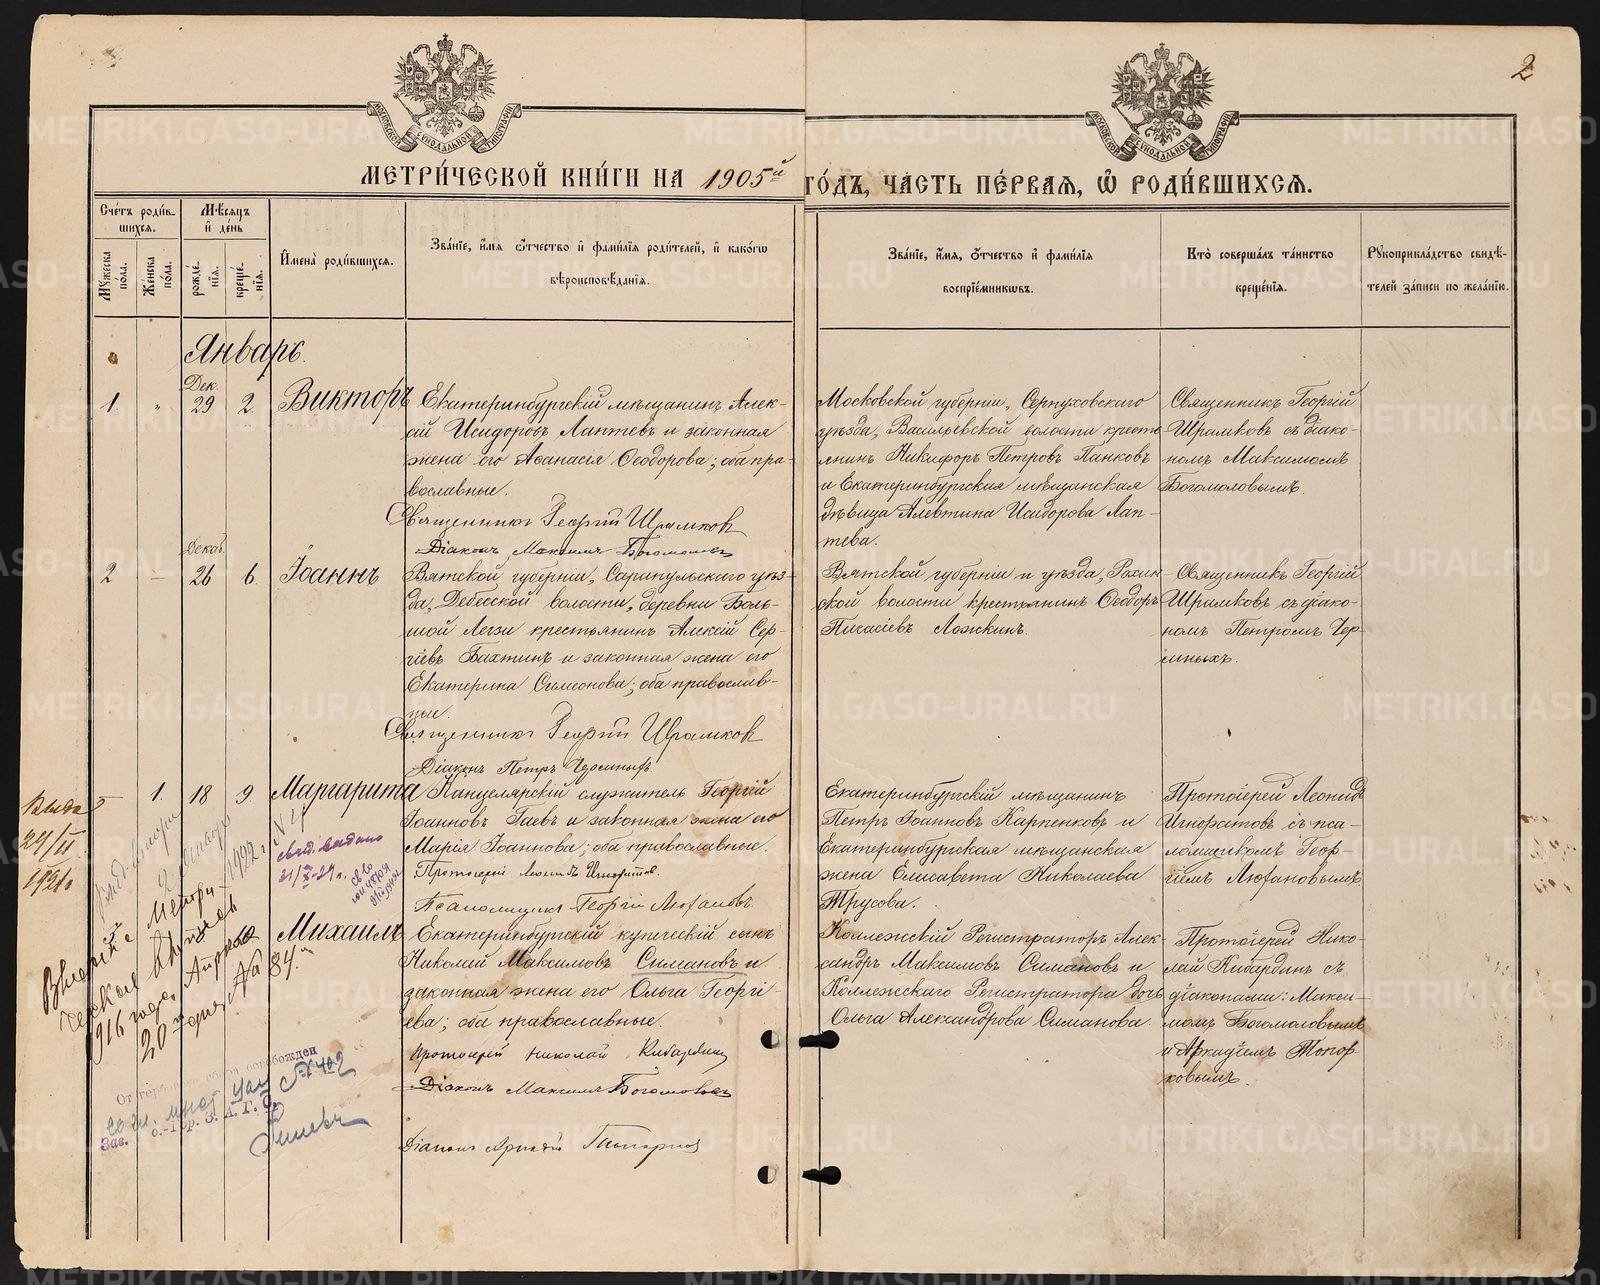 2
МОСКОВСКОЙ СѴНОДАЛЬНОЙ ТИПОГРАФІИ
МОСКОВСКОЙ СѴНОДАЛЬНОЙ ТИПОГРАФІИ
МЕТРИ́ЧЕСКОЙ КНИ́ГИ НА 1905й ГО́ДЪ, ЧА́СТЬ ПЕ́РВАЯ, Ѿ РОДИ́ВШИХСЯ.
Сче́тъ роди́в-
шихся.
Му́жеска по́ла.
Же́нска по́ла.
Мѣ́сяцъ и де́нь
рожде́-
нія.
креще́-
нія.
Имена̀ роди́вшихся.
Зва́ніе, и́мя о́тчество и фами́лія роди́телей, и како́гѡ
вѣроисповѣ́данія.
Зва́ніе, и́мя, о́тчество и фами́лія
воспріе́мниковъ.
Кто̀ соверша́лъ та́инство
креще́нія.
Рꙋкоприкла́дство свидѣ́-
телей за́писи по жела́нію.
Январь.
1. " Дек. 29 2. Викторъ
Екатеринбургскій мѣщанинъ Алек-
сій Исидоровъ Лаптевъ и законная
жена его Аѳанасія Ѳеодорова; оба пра-
вославные.
Священникъ Георгій Шрамков
Діаконъ Максимъ Богомолов
Московской губерніи, Серпуховскаго
уѣзда, Васильевской волости кресть-
янинъ Никифоръ Петровъ Панковъ
и Екатеринбургская мѣщанская
дѣвица Алевтина Исидорова Лап-
тева.
Священникъ Георгій
Шрамковъ съ діако-
номъ Максимомъ
Богомоловымъ.
2 – Декаб. 26 6. Іоаннъ
Вятской губерніи, Сарапульскаго уѣз-
да, Дебесской волости, деревни Боль-
шой Легзи крестьянинъ Алексій Сер-
гіевъ Бахтинъ и законная жена его
Екатерина Симеонова; оба православ-
ные.
Священникъ Георгій Шрамков
Діаконъ Петръ Чермных
Вятской губерніи и уѣзда,
ской волости крестьянинъ Ѳеодоръ
Ложкинъ.
Священникъ Георгій
Шрамковъ съ діако-
номъ Петромъ Чер-
мныхъ.
– 1. 18 9. Маргарита
Канцелярскій служитель Георгій
Іоанновъ Гаевъ и законная жена его
Марія Іоаннова; оба православные.
Протоіерей Леонидъ Игнатов.
Псаломщикъ Георгій Люхановъ
Екатеринбургскій мѣщанинъ
Петръ Іоанновъ Карпенковъ и
Екатеринбургская мѣщанская
жена Елисавета Николаева
Трусова.
Протоіерей Леонидъ
съ пса-
ломщикомъ Геор-
гіемъ Люхановымъ
Михаилъ
Екатеринбургскій купеческій сынъ
Николай Максимовъ Симановъ и
законная жена его Ольга Георгі-
ева; оба православные.
Протоіерей Николай Кибардин
Діаконъ Максимъ Богомолов
Діаконъ Аркадій
Коллежскій Регистраторъ Алек-
сандръ Максимовъ Симановъ и
Коллежскаго Регистратора дочь
Ольга Александрова Симанова.
Протоіерей Нико-
лай Кибардинъ съ
діаконами: Макси-
момъ Богомоловымъ
и Аркадіемъ Топор-
ковымъ.
29/II
1921г
1922 г.
20 дня № 84.
З.А.Г.С.
Зав.
METRIKI.GASO-URAL.RU